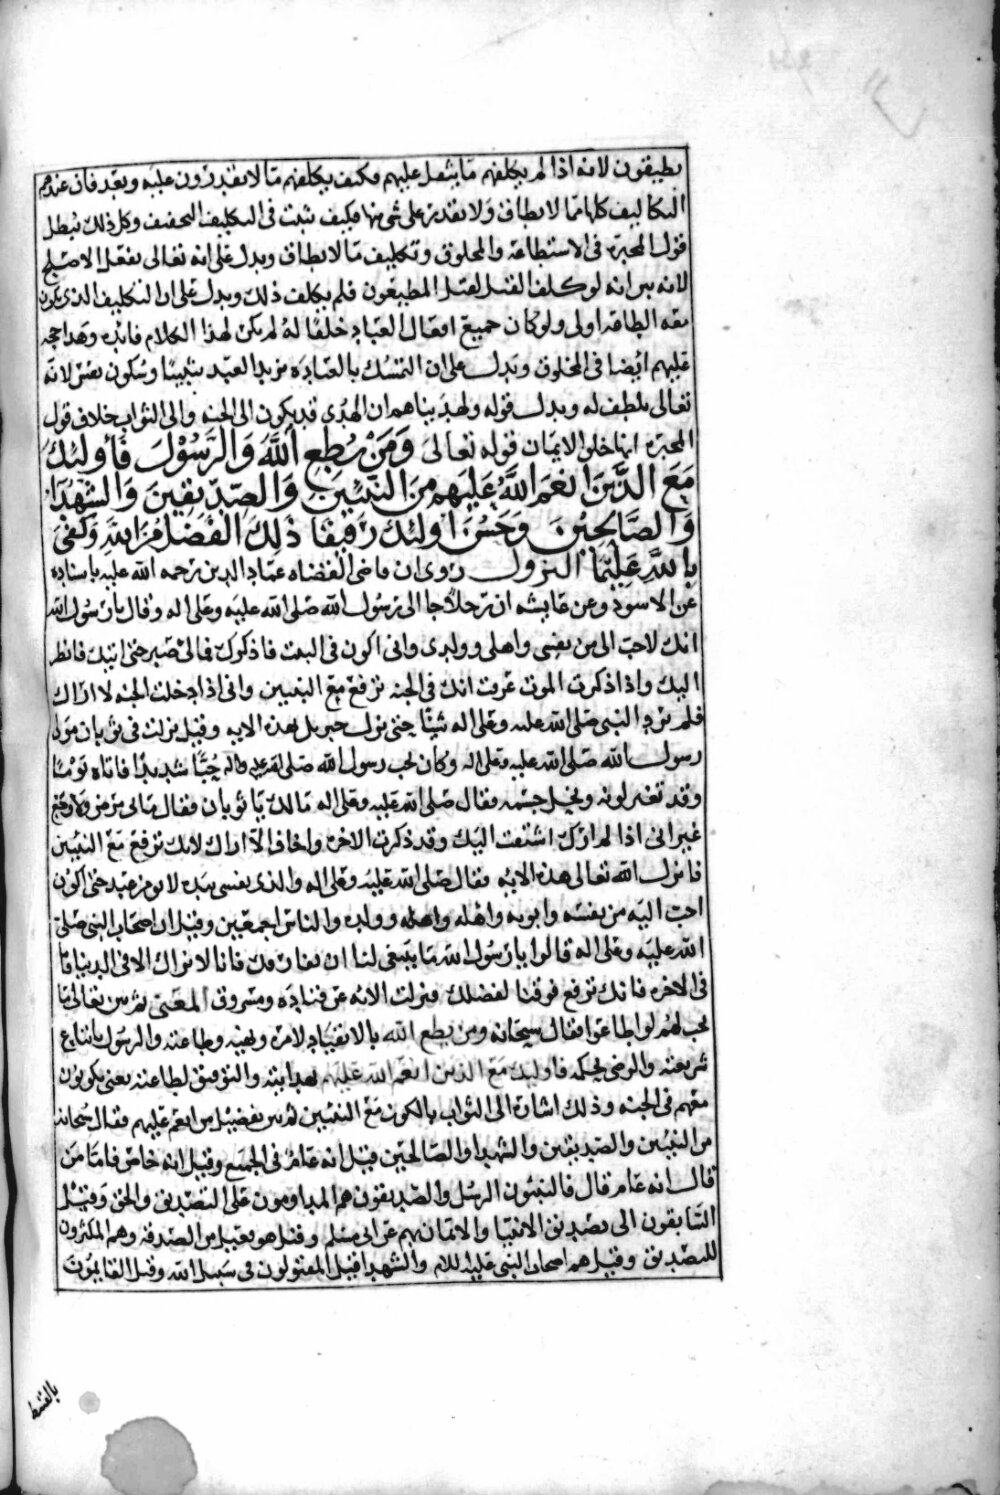 يطيقون لانه اذا لم يكلفهم ما يثقل عليهم فكيف يكلفهم ما لا يقدرون عليه وبعد فان عندهم
التكاليف كلها مما لا يطاق ولا يقدر على شي منها فكيف يثبت في التكليف التخفيف وكل ذلك يبطل
قول المجبرة في الاستطاعة والمخلوق وتكليف ما لا يطاق ويدل على انه تعالى يفعل الاصلح
لانه بين انه لو كلف القتل لقتل المطيعون فلم يكلف ذلك ويدل على ان التكليف الذي يكون
معه الطاقه اولى ولو كان جميع افعال العباد خلقا له لم يكن لهذا الكلام فائده وهذا حجه
عليهم ايضا في المخلوق وتدل على ان التمسك بالعباده مزيد العبد تثبيتا وسكون نفس لانه
تعالى يلطف له ويدل قوله ولهديناهم ان الهدى قد يكون الى الجنه والى الثواب خلاف قول
المجبره انها خلق الايمان قوله تعالى وَمَنْ يُطِعِ اللَّهَ وَالرَّسُوْلَ فَأُولئِكَ
مَعَ الَّذِينَ انْعَمَ اللَّهُ عَلَيهِم مِنَ النَّبِيِّينَ وَالصِّدِّيقِينَ وَالشُّهَدَاءِ
وَالصَّالِحِينَ وَحَسُنَ اُولئِكَ رَفِيقًا ذٰلِكَ الْفَضْلُ مِنَ اللَّهِ وَكَفَى
بِاللَّهِ عَلِيْمًا النزول روى ان قاضي القضاه عماد الدين رحمه الله عليه باسناده
عن الاسود وعن عايشه ان رجلا جا الى رسول الله صلى الله عليه وعلى اله وقال يا رسول الله
انك لاحب الى من نفسي واهلي وولدي واني اكون في البيت فاذكرك فمالي صبر حتى اتيك فانظر
اليك واذا ذكرت الموت عرفت انك في الجنه ترفع مع النبيين واني اذا دخلت الجنه لا اراك
فلم يرد النبي صلى الله عليه وعلى اله شيئا حتى نزل جبريل بهذه الايه وقيل نزلت في ثوبان مولى
رسول الله صلى الله عليه وعلى اله وكان يحب رسول الله صلى الله عليه واله حُبًّا شديدا فاتاه يومًا
وقد تغير لونه ونحل جسمه فقال صلى الله عليه وعلى اله مالك يا ثوبان فقال مالى من مرض ولا وجع
غير انى اذا لم ارك اشتقت اليك وقد ذكرت الاخرة واخاف الا اراك لانك ترفع مع النبيين
فانزل الله تعالى هذه الايه فقال صلى الله عليه وعلى اله والذي نفسي بيده لا يومن عبد حتى اكون
احب اليه من نفسه وابويه واهله وولده والناس اجمعين وقيل ان اصحاب النبي صلى
الله عليه وعلى اله قالوا يا رسول الله ما ينبغي لنا ان نفارقك فانا لا نراك الا في الدنيا فاما
في الاخرة فانك ترفع فوقنا لفضلك فنزلت الايه عن قتاده ومسروق المعنى ثم بين تعالى ما
يجب لهم لو اطاعوا فقال سبحانه ومن يطع الله بالانقياد لامره ونهيه وطاعته والرسول باتباع
شريعته والرضى بحكمه فاوليك مع الذين انعم الله عليهم بهدايته والتوفيق لطاعته يعنى يكونون
معهم في الجنه وذلك اشارة الى الثواب بالكون مع النبيين ثم بين تفضيل من انعم عليهم فقال سبحانه
من النبيين والصديقين والشهدا والصالحين قيل انه عام في الجميع وقيل انه خاص فاما من
قال انه عام قال فالنبيون الرسل والصديقون هم المداومون على التصديق والحق وقيل
السابقون الى تصديق الانبيا والايمان بهم عن ابي مسلم وقيل هو فعيل من الصدقه وهم المكثرون
للتصديق وقيل هم اصحاب النبي عليه السلام والشهدا قيل المقتولون في سبيل الله وقيل القايمون
بالقسط